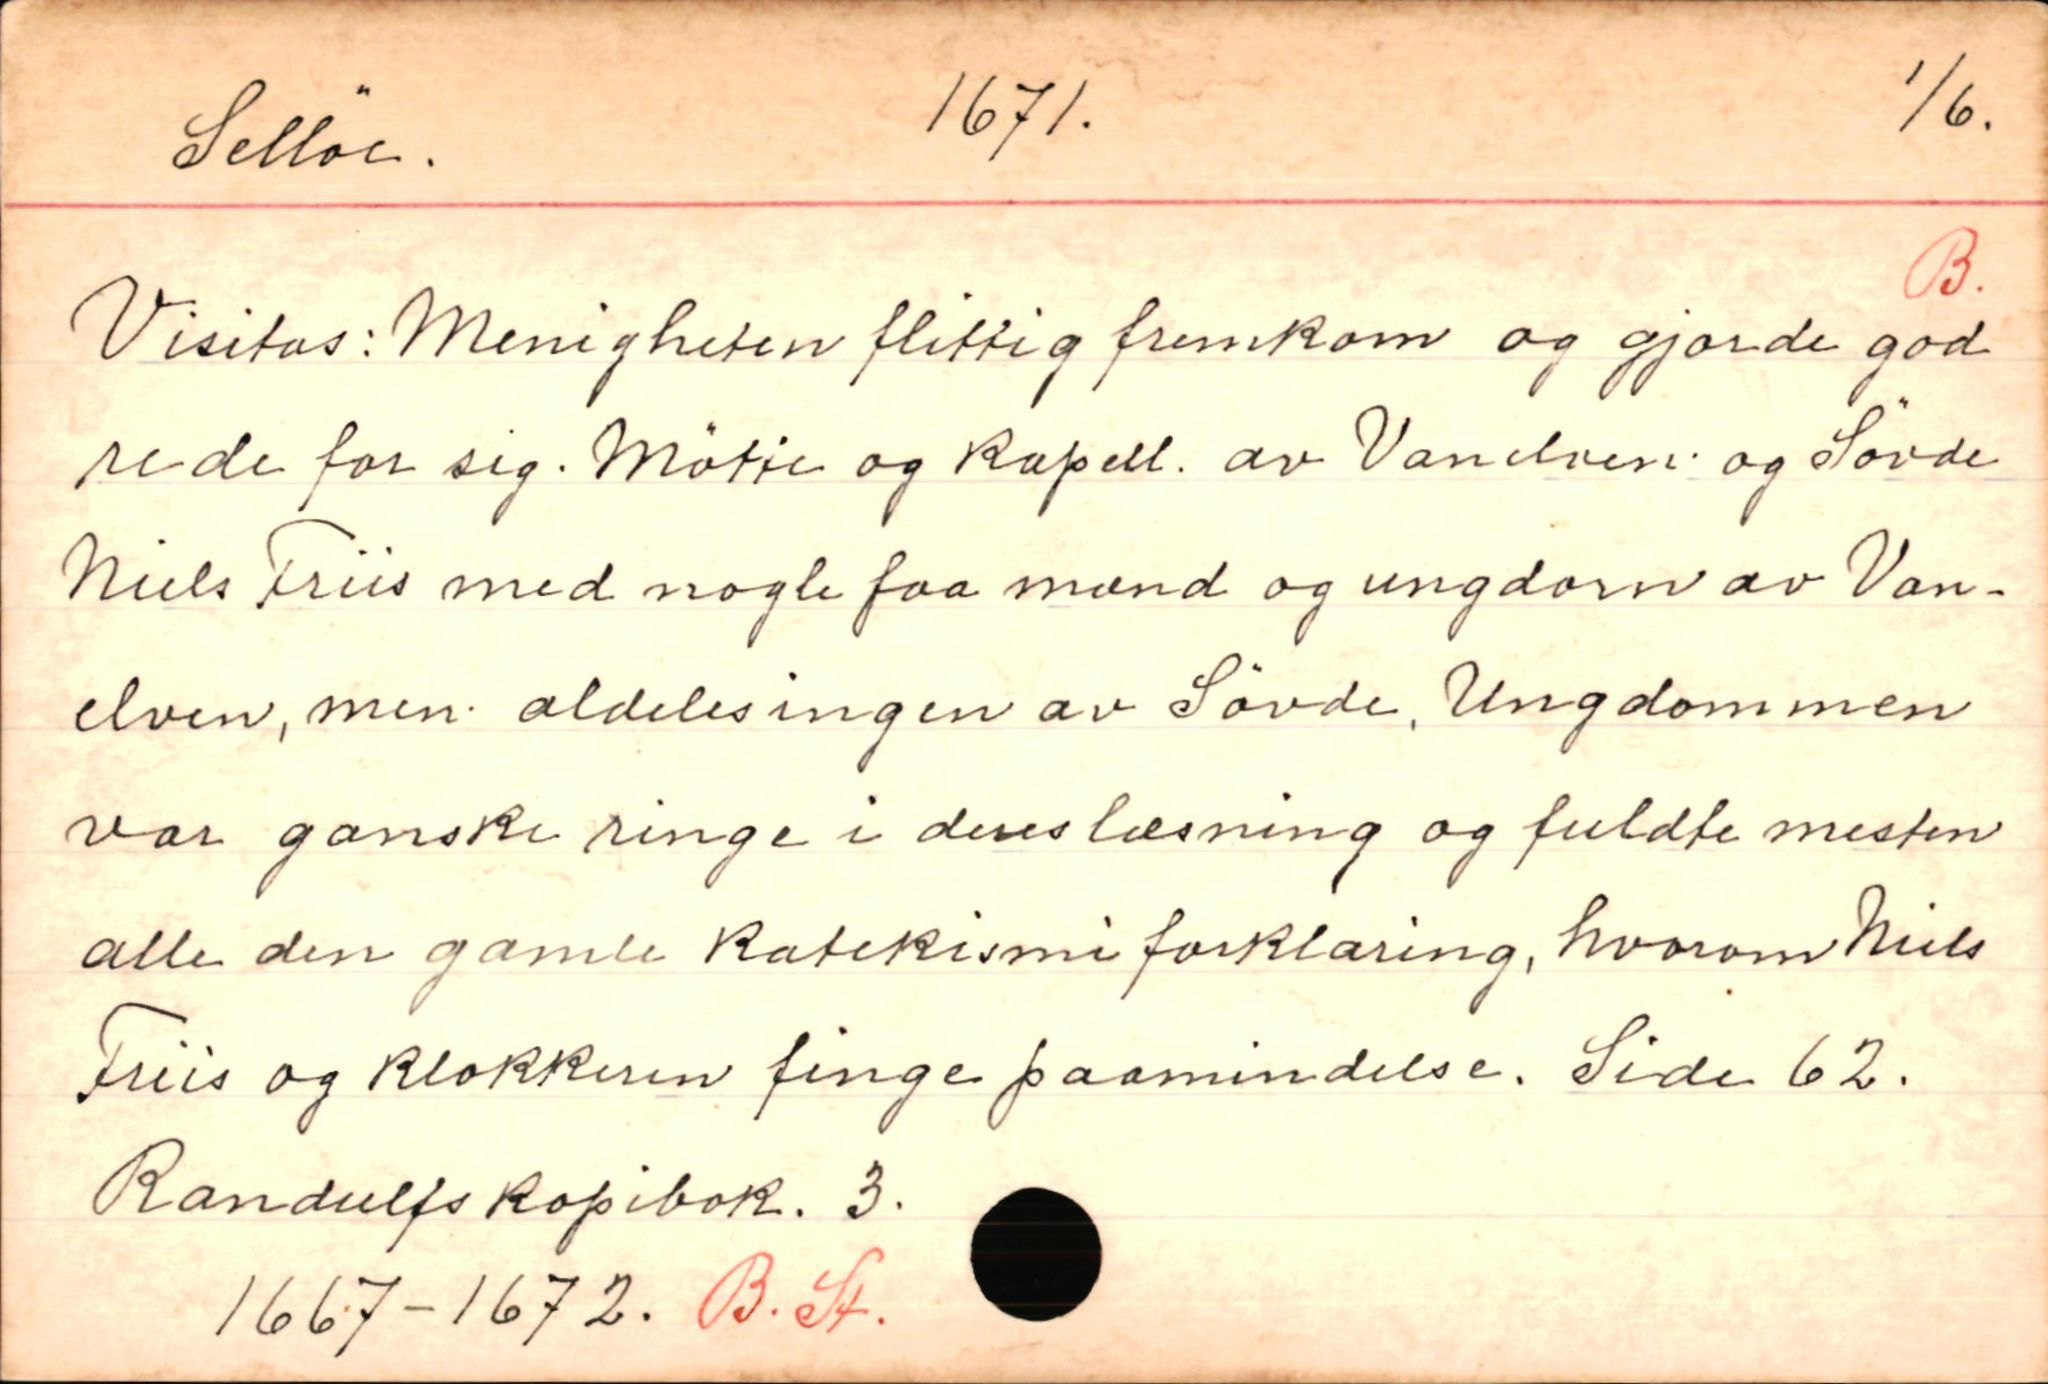 Sellöe. 1671. 1/6.
B.
Visitas: Menigheten flittig fremkom og gjorde god
rede for sig. Mötte og kapell. av Vanelven og Sövde
Niels Friis med nogle faa mænd og ungdom av Van-
elven, men aldeles ingen av Sövde. Ungdommen
var ganske ringe i deres læsning og fuldte mesten
alle den gamle Katekismi forklaring, hvorom Niels
Friis og klokkeren finge paamindelse. Side 62.
Randulfs kopibok. 3.
1667-1672. B. St.